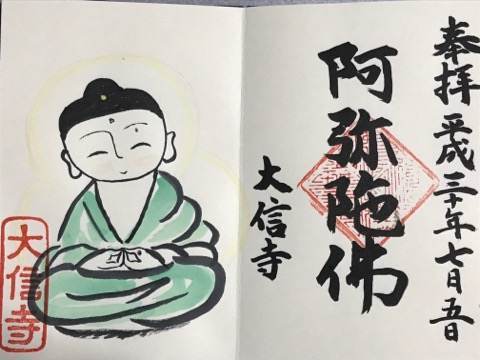 奉拝 平成三十年七月五日
阿弥陀佛
大信寺
大信寺